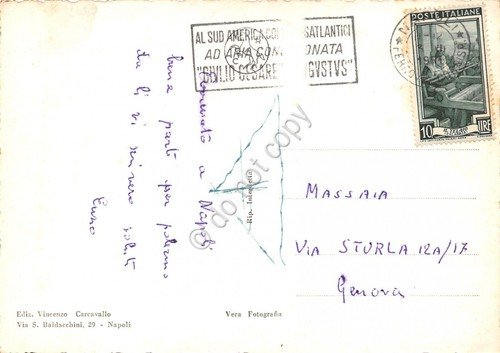 AL SUD AMERICA CON I TRANSATLANTICI
AD ARIA CONDIZIONATA
"GIULIO CESARE" "AUGUSTUS"
POSTE ITALIANE
10 LIRE
Arrivato a Napoli
bene parti per palermo
da lì vi scriverò saluti
Enzo
Rip. Interdetta
MASSAIA
VIA STURLA 12A/17
Genova
Ediz. Vincenzo Carcavallo
Via S. Baldacchini, 29 - Napoli
Vera Fotografia
do not copy